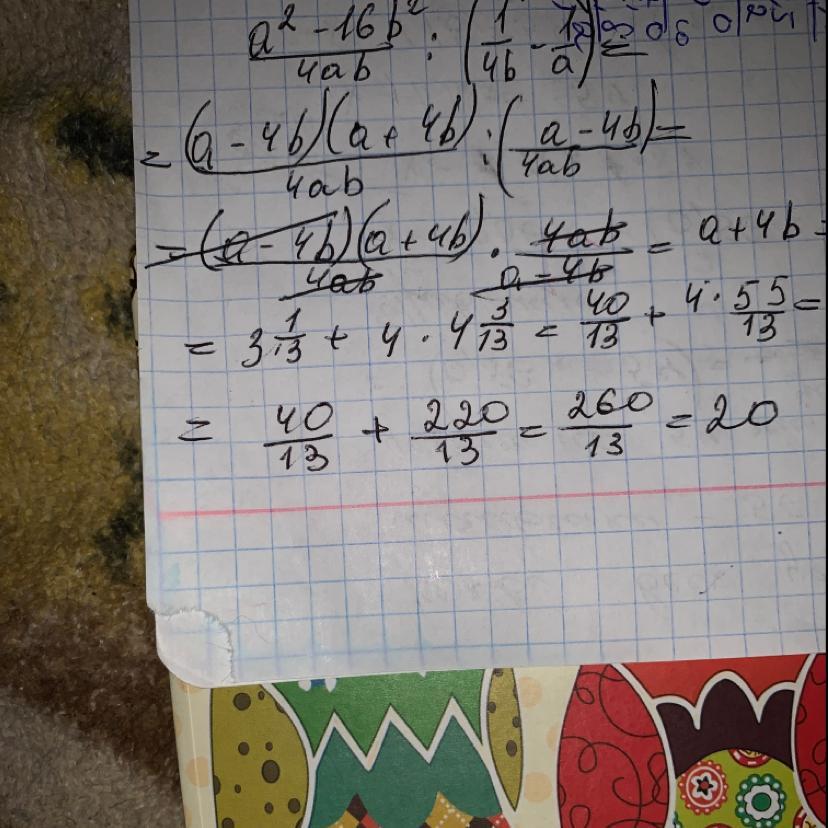 a² - 16b² / 4ab : (1/4b - 1/a) =
= (a - 4b)(a + 4b) / 4ab : (a - 4b / 4ab) =
= (a - 4b)(a + 4b) / 4ab · 4ab / a - 4b = a + 4b =
= 3 1/13 + 4 · 4 3/13 = 40/13 + 4 · 55/13 =
= 40/13 + 220/13 = 260/13 = 20